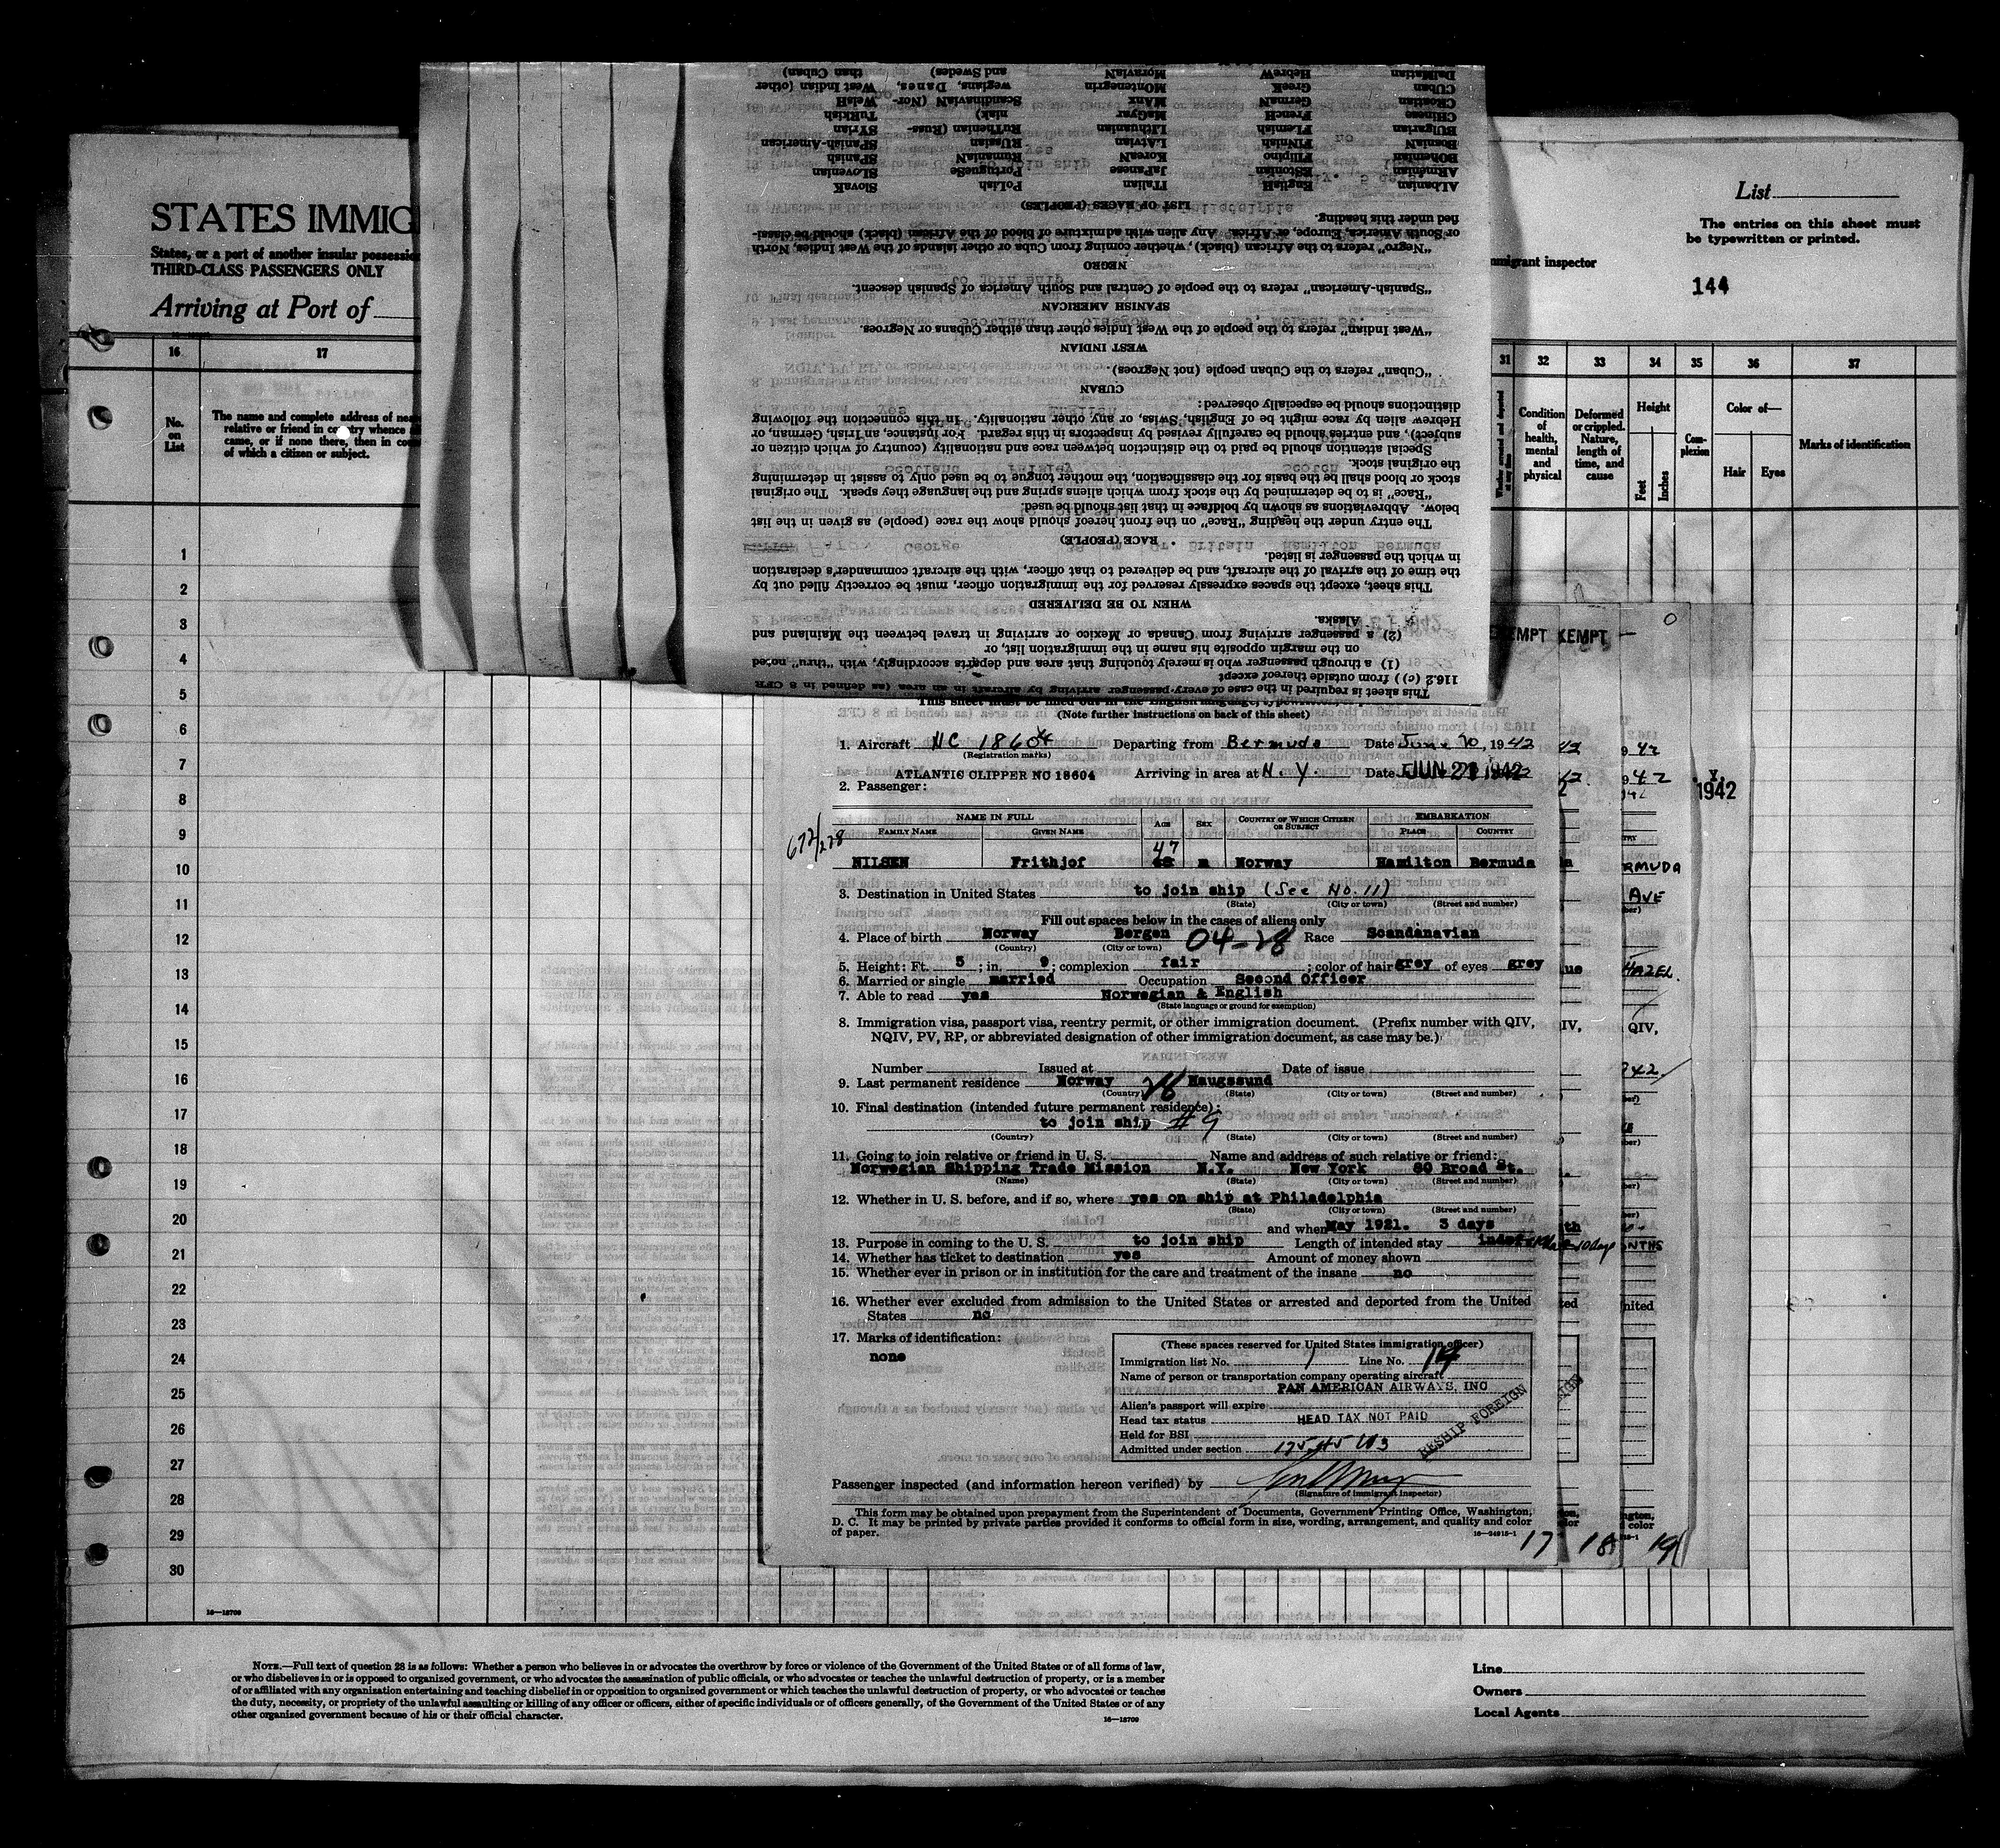 STATES IMMIG
States, or a part of another insular possessi
THIRD-CLASS PASSENGERS ONLY
Arriving at Port of
16
17
No. on List
The name and complete address of nea
relative or friend in country whence
came, or if none there, then in cou
of which a citizen or subject.
1
2
3
4
5
6
7
8
9
10
11
12
13
14
15
16
17
18
19
20
21
22
23
24
25
26
27
28
29
30
16—18709
List
The entries on this sheet must
be typewritten or printed.
mmigrant inspector
144
31 32 33 34 35 36 37
Condition of health, mental and physical
Deformed or crippled. Nature, length of time, and cause
Height
Feet
Inches
Complexion
Color of—
Hair
Eyes
Marks of identification
Slovak
Polish
Italian
English
Albanian
Slovenian
Portuguese
Japanese
Estonian
Armenian
Spanish
Rumanian
Korean
Filipino
Bohemian
Spanish-American
Russian
Latvian
Finnish
Bosnian
Syrian
Ruthenian (Russniak)
Lithuanian
Flemish
Bulgarian
Turkish
Magyar
French
Chinese
Welsh
Scandinavian (Norwegians, Danes, and Swedes)
Manx
German
Croatian
West Indian (other than Cuban)
Montenegrin
Greek
Cuban
Moravian
Hebrew
Dalmatian
LIST OF RACES (PEOPLES)
"Negro" refers to the African (black), whether coming from Cuba or other islands of the West Indies, North
or South America, Europe, or Africa. Any alien with admixture of blood of the African (black) should be classi-
fied under this heading.
NEGRO
"Spanish-American" refers to the people of Central and South America of Spanish descent.
SPANISH AMERICAN
"West Indian" refers to the people of the West Indies other than either Cubans or Negroes.
WEST INDIAN
"Cuban" refers to the Cuban people (not Negroes).
CUBAN
Special attention should be paid to the distinction between race and nationality (country of which citizen or
subject), and entries should be carefully revised by inspectors in this regard. For instance, an Irish, German, or
Hebrew alien by race might be of English, Swiss, or any other nationality. In this connection the following
distinctions should be especially observed:
The entry under the heading "Race" on the front hereof should show the race (people) as given in the list
below. Abbreviations as shown by boldface in that list should be used:
"Race" is to be determined by the stock from which aliens spring and the language they speak. The original
stock or blood shall be the basis for the classification, the mother tongue to be used only to assist in determining
the original stock.
RACE (PEOPLE)
This sheet, except the spaces expressly reserved for the immigration officer, must be correctly filled out by
the time of the arrival of the aircraft, and be delivered to that officer, with the aircraft commander's declaration
in which the passenger is listed.
WHEN TO BE DELIVERED
This sheet is required in the case of every passenger arriving by aircraft in an area (as defined in 8 CFR
116.2 (c)) from outside thereof except
(1) a through passenger who is merely touching that area and departs accordingly, with "thru" noted
on the margin opposite his name in the immigration list, or
(2) a passenger arriving from Canada or Mexico or arriving in travel between the Mainland and
Alaska.
(Note further instructions on back of this sheet)
1. Aircraft NC 18604 Departing from Bermuda Date June 20, 1942
(Registration marks)
ATLANTIC CLIPPER NC 18604 Arriving in area at N. Y. Date JUN 21 1942
2. Passenger:
NAME IN FULL
FAMILY NAME
GIVEN NAME
AGE
SEX
COUNTRY OF WHICH CITIZEN OR SUBJECT
EMBARKATION
PLACE
COUNTRY
672/228
47
NILSEN Frithjof m Norway Hamilton Bermuda
3. Destination in United States to join ship (See No. 11)
(State) (City or town) (Street and number)
Fill out spaces below in the cases of aliens only
4. Place of birth Norway Bergen 04-28 Race Scandanavian
(Country) (City or town)
5. Height: Ft. 5; in. 9; complexion fair; color of hair grey of eyes grey
6. Married or single married Occupation Second Officer
7. Able to read yes Norwegian & English
(State language or ground for exemption)
8. Immigration visa, passport visa, reentry permit, or other immigration document. (Prefix number with QIV,
NQIV, PV, RP, or abbreviated designation of other immigration document, as case may be.)
Number Issued at Date of issue
9. Last permanent residence Norway 28 Haugssund
(Country) (State) (City or town) (Street and number)
10. Final destination (intended future permanent residence):
to join ship #9
(Country) (State) (City or town) (Street and number)
11. Going to join relative or friend in U. S. Name and address of such relative or friend:
Norwegian Shipping Trade Mission N.Y. New York 80 Broad St.
(Name) (State) (City or town) (Street and number)
12. Whether in U. S. before, and if so, where yes on ship at Philadelphia
(State) (City or town) (Street and number)
and when May 1921. 3 days
13. Purpose in coming to the U. S. to join ship Length of intended stay
14. Whether has ticket to destination yes Amount of money shown
15. Whether ever in prison or in institution for the care and treatment of the insane no
16. Whether ever excluded from admission to the United States or arrested and deported from the United
States no
17. Marks of identification:
none
(These spaces reserved for United States immigration officer)
Immigration list No. 1 Line No.
Name of person or transportation company operating aircraft
PAN AMERICAN AIRWAYS, INC
Alien's passport will expire
Head tax status HEAD TAX NOT PAID
Held for BSI
Admitted under section
RESHIP FOREIGN
Passenger inspected (and information hereon verified) by
(Signature of immigrant inspector)
This form may be obtained upon prepayment from the Superintendent of Documents, Government Printing Office, Washington,
D. C. It may be printed by private parties provided it conforms to official form in size, wording, arrangement, and quality and color
of paper.
16—24915-1
17 18 19
EMPT KEMPT
1942
RMUDA
AVE
HAZEL
QIV,
NOTE.—Full text of question 28 is as follows: Whether a person who believes in or advocates the overthrow by force or violence of the Government of the United States or of all forms of law,
or who disbelieves in or is opposed to organized government, or who advocates the assassination of public officials, or who advocates or teaches the unlawful destruction of property, or is a member
of or affiliated with any organization entertaining and teaching disbelief in or opposition to organized government or which teaches the unlawful destruction of property, or who advocates or teaches
the duty, necessity, or propriety of the unlawful assaulting or killing of any officer or officers, either of specific individuals or of officers generally, of the Government of the United States or of any
other organized government because of his or their official character.
16—18709
Line
Owners
Local Agents